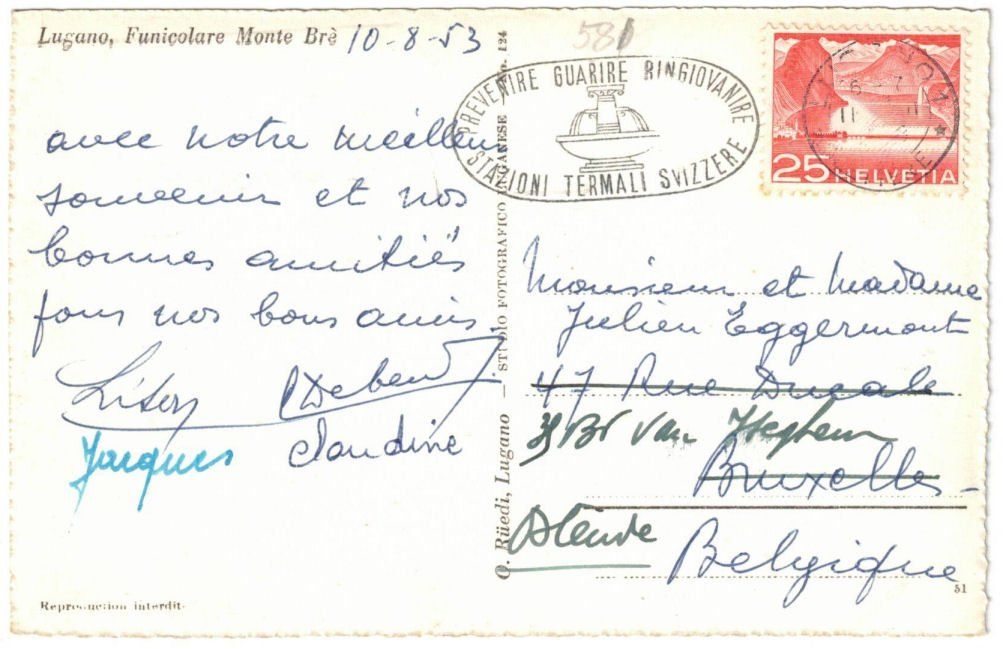 Lugano, Funicolare Monte Brè
10-8-53
581
PREVENIRE GUARIRE RINGIOVANIRE
STAZIONI TERMALI SVIZZERE
25 HELVETIA
avec notre meilleur
souvenir et nos
bonnes amitiés
pour nos bons amis.
Jacques Claudine
O. Rüedi, Lugano — STUDIO FOTOGRAFICO LUGANESE No. 124
Monsieur et Madame
Julien Eggermont
47 Rue Ducale
Bd Van Iseghem
Bruxelles
Ostende
Belgique
51
Reproduction interdit